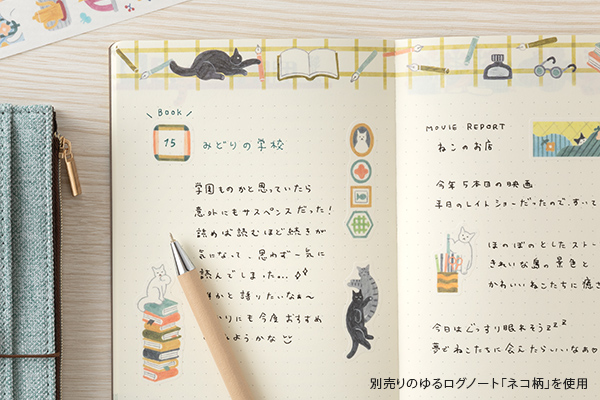 Book
15
みどりの学校
学園ものかと思っていたら
意外にもサスペンスだった!
読めば読むほど続きが
気になって、思わず一気に
読んでしまった...
かと語りたいなぁ〜
にも今度おすすめ
ようかな
MOVIE REPORT
ねこのお店
今年5本目の映画
平日のレイトショーだったので、すいて
ほのぼのとしたストー
きれいな島の景色と
かわいいねこたちに癒さ
今日はぐっすり眠れそうzzz
夢でねこたちに会えたらいいなぁ
別売りのゆるログノート「ネコ柄」を使用